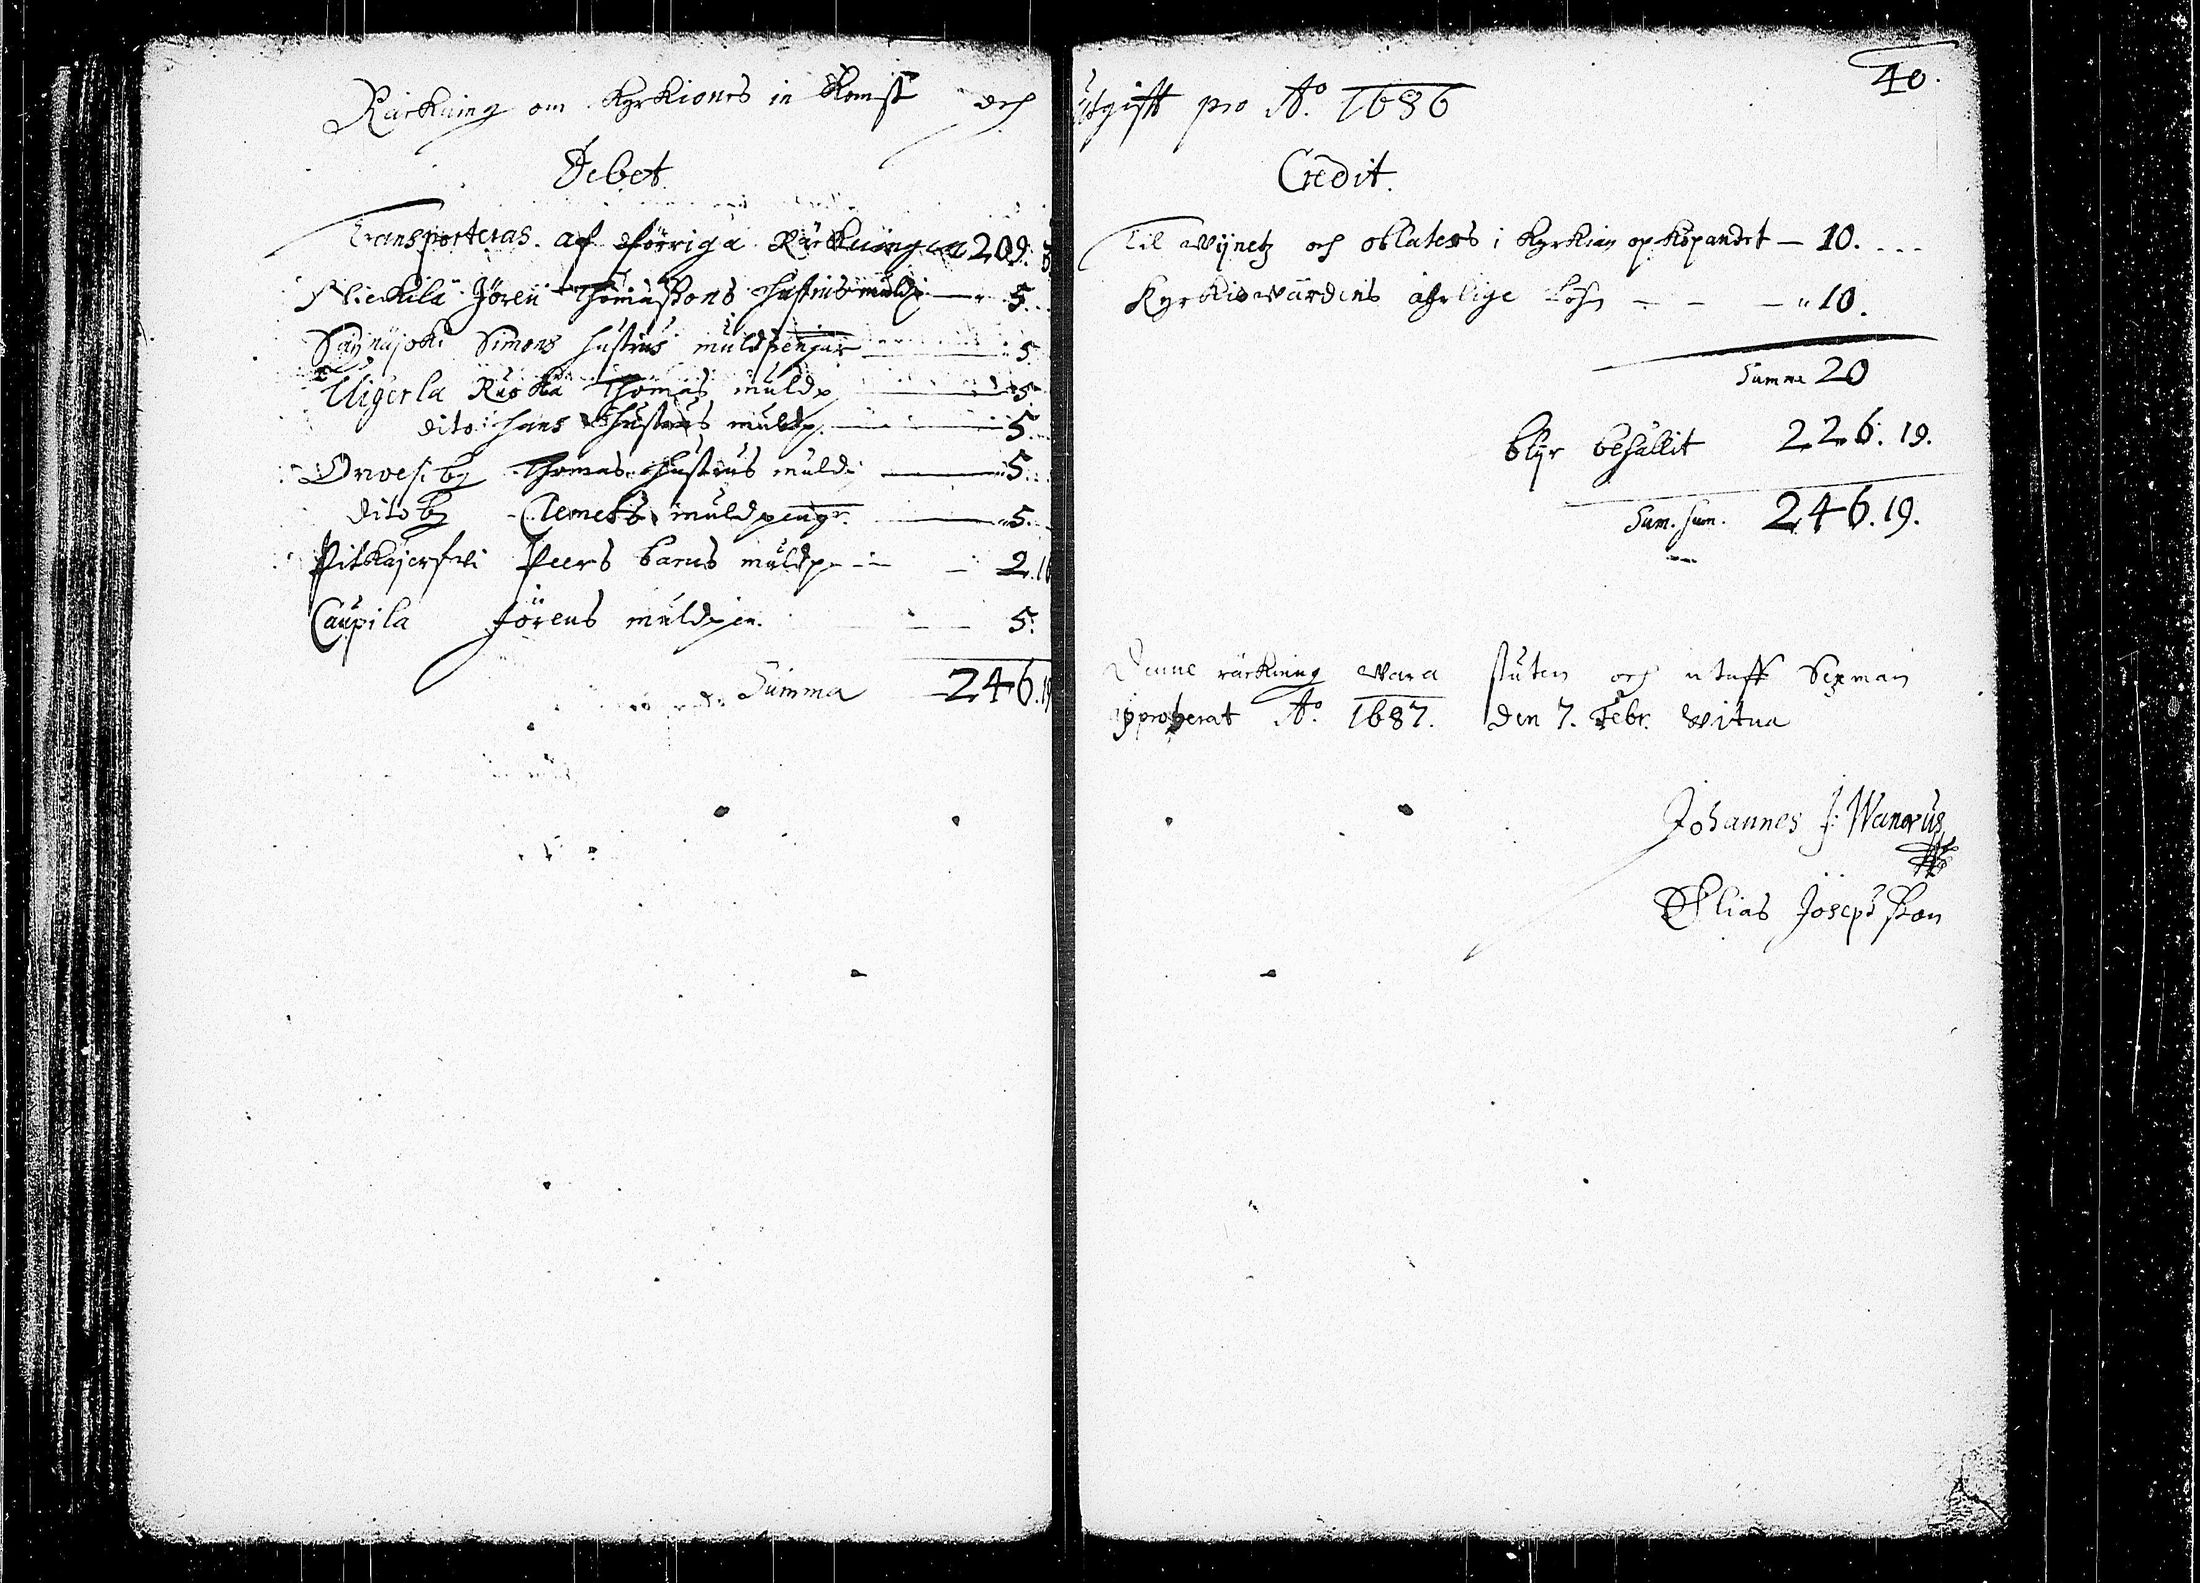 Räckning om Kyrkiones in komst och
Debet
Transporteras af förriga Räckningen 209. 3
Nickilä Jören Thomassons hustrus muldp 5.
Säynäjoki Simons hustrus muldpenjar 5
Uigerla Thomas muldp 5
dito hans hustrus muldp. 5.
Orvesi by Thomas hustrus muld 5.
dito by Clemets muldpengr. 5.
Pitkäjerfwi Peers barns muldp 2. 16
Caupila Jörens muldpen. 5.
Summa 246. 19
40.
Utgifft pro Ao. 1686
Credit.
Til wijnetz och oblaters i Kyrkian opköpandet — 10.
Kyrkiowärdens åhrlige löhn — 10.
Summa 20
blijr behållit 226. 19.
Sum. sum. 246. 19.
Denne räckning wara sluten och utaff Sexmän
approberat Ao. 1687. den 7. Febr. witna
Johannes J: Wanæus
Elias Josephsson